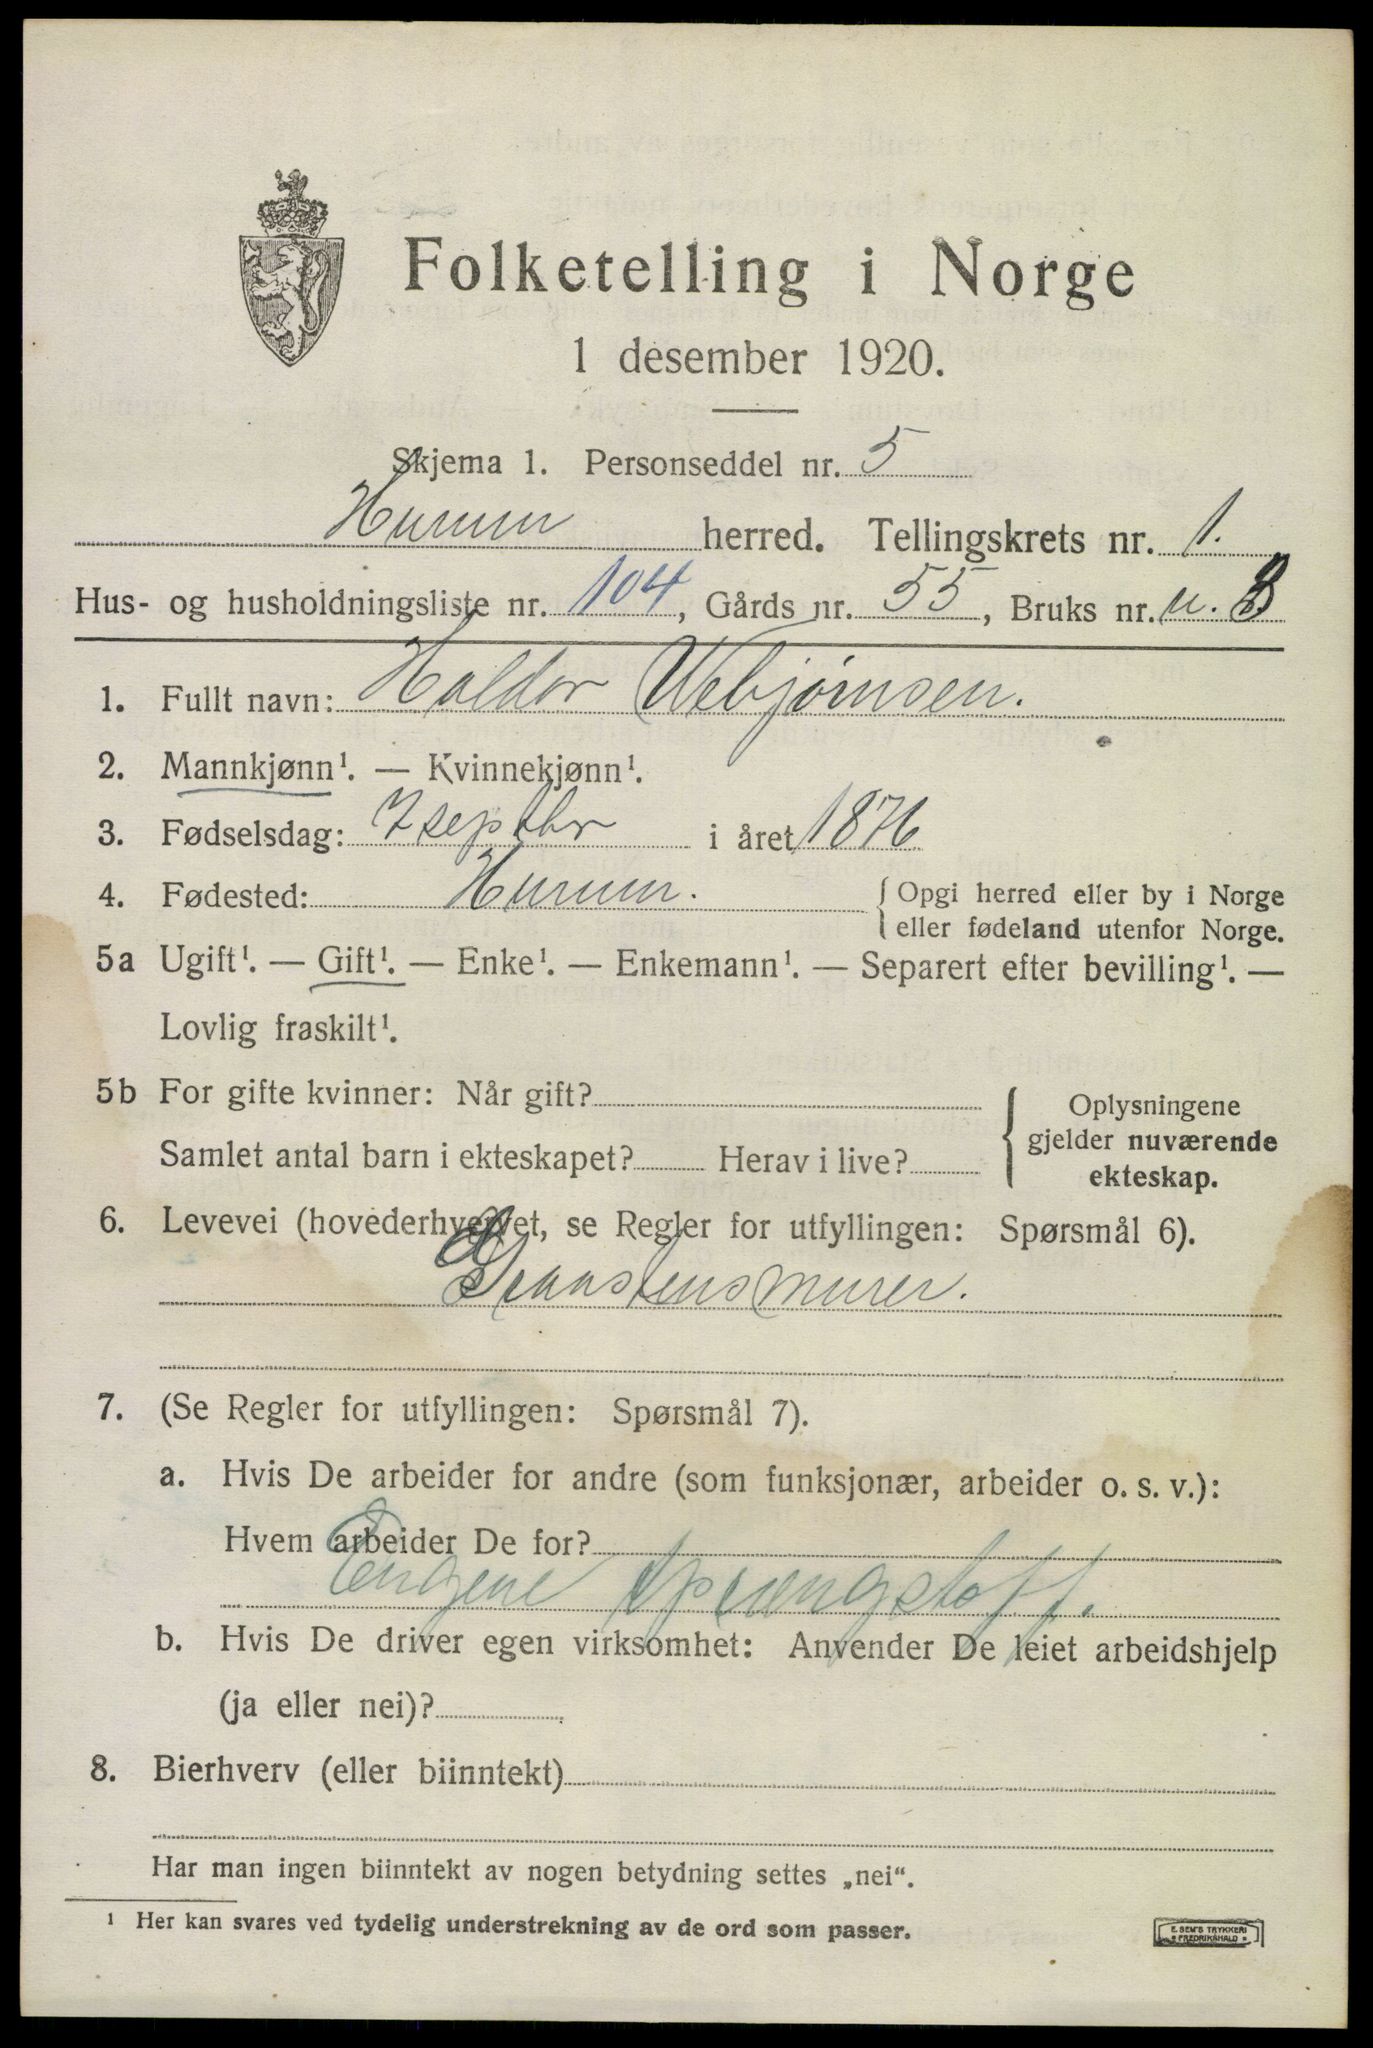 Folketelling i Norge
1 desember 1920.
Skjema 1. Personseddel nr. 5
Hurum herred. Tellingskrets nr. 1.
Hus- og husholdningsliste nr. 104, Gårds nr. 55, Bruks nr. u. B
1. Fullt navn: Haldor Uebjørnsen.
2. Mannkjønn¹. — Kvinnekjønn¹.
3. Fødselsdag: 7 septbr i året 1876
4. Fødested: Hurum. { Opgi herred eller by i Norge
eller fødeland utenfor Norge.
5a Ugift¹. — Gift¹. — Enke¹. — Enkemann¹. — Separert efter bevilling¹. —
Lovlig fraskilt¹.
5b For gifte kvinner: Når gift? { Oplysningene
gjelder nuværende
Samlet antal barn i ekteskapet? Herav i live?
ekteskap.
6. Levevei (hovederhvervet, se Regler for utfyllingen: Spørsmål 6).
Graastensmurer.
7. (Se Regler for utfyllingen: Spørsmål 7).
a. Hvis De arbeider for andre (som funksjonær, arbeider o. s. v.):
Hvem arbeider De for?
Engene sprængstoff.
b. Hvis De driver egen virksomhet: Anvender De leiet arbeidshjelp
(ja eller nei)?
8. Bierhverv (eller biinntekt)
Har man ingen biinntekt av nogen betydning settes „nei“.
¹ Her kan svares ved tydelig understrekning av de ord som passer.
E. SEM'S TRYKKERI
FREDRIKSHALD